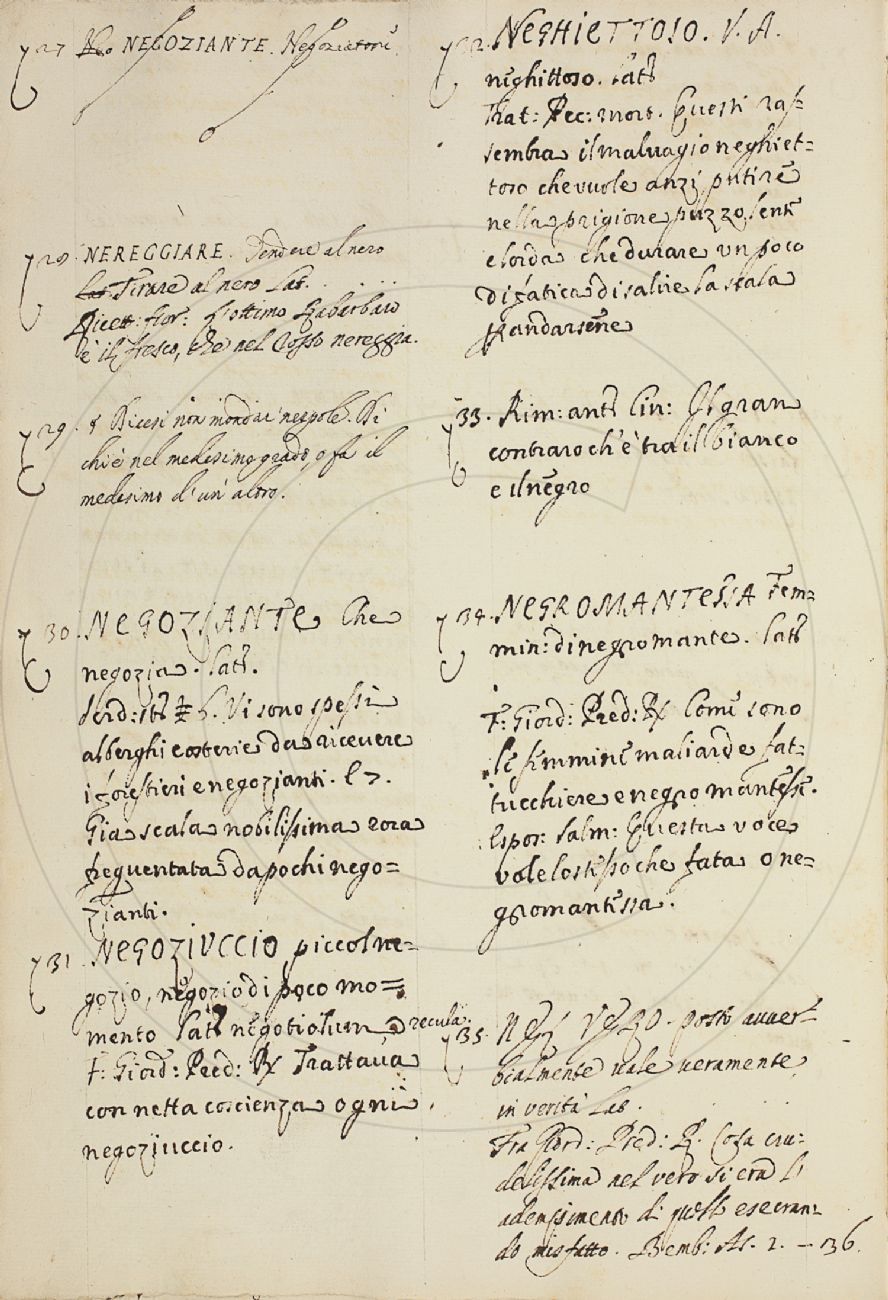 27 NEGOZIANTE. Negoziatore
28. NEREGGIARE. Tendere al nero
Tirare al nero Lat. . . . .
Ricett: fior: l'ottimo Rabarbaro
è il fresco, che nel rosso nereggia.
29. Dicesi non mondar nespole. Di
chi è nel medesimo grado, o fa il
medesimo d'un altro.
30. NEGOZIANTE Che
negozia. Lat.
Vi sono spessi
alberghi e osterie da ricevere
i forestieri e negozianti. E 7.
Gia scala nobilissima e ora
frequentata da pochi nego=
zianti.
31. NEGOZIUCCIO piccol ne=
gozio, negozio di poco mo=
mento Lat. negotiolum, recula.
F: Giord: Pred: R Trattava
con netta coscienza ogni
negoziuccio.
32. NEGHIETTOSO. V. A.
neghittoso. Lat.
Trat: Pec: mort. Questi ras=
sembra il malvagio neghiet=
toso che vuole anzi putire
nella prigione puzzolente
e lorda che durare un poco
di fatica di salire la scala
p andarsene
33. Rim: ant. Cin: Il gran
contraro ch'è tra il bianco
e il negro
34. NEGROMANTESSA Fem=
min: di negromante. Lat.
F: Giord: Pred: R Come sono
le femmine maliarde fat=
tucchiere e negromantesse.
Espor: Salm: Questa voce
vole lo stesso che fata o ne=
gromantessa.
35. posto avver=
bialmente vale veramente,
in verità Lat.
Fra Giord: Pred: R. Cosa cru=
delissima nel vero si era l'
adempimento di questo esecran=
do misfatto. Bemb: As. 2. – 136.